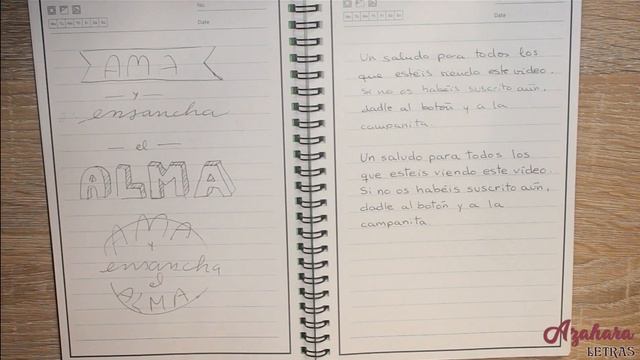 No.
Mo Tu We Th Fr Sa Su
Date
AMA
y
ensancha
el
ALMA
AMA
y
ensancha
el
ALMA
Mo Tu We Th Fr Sa Su
Date
Un saludo para todos los
que esteis viendo este vídeo.
Si no os habéis suscrito aún,
dadle al botón y a la
campanita.
Un saludo para todos los
que esteis viendo este vídeo.
Si no os habéis suscrito aún,
dadle al botón y a la
campanita.
Azahara
LETRAS